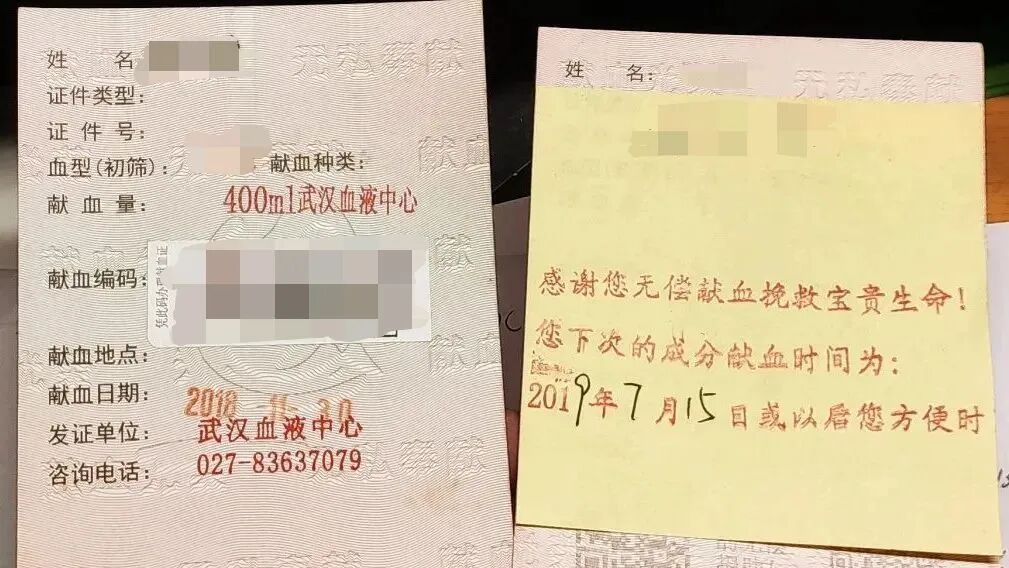 姓 名
证件类型：
证 件 号：
血型(初筛)： 献血种类：
献 血 量： 400ml武汉血液中心
献血编码：
凭此码办
献血地点：
献血日期： 2018 11 30
发证单位： 武汉血液中心
咨询电话： 027-83637079
无私奉献
姓 名：
无私奉献
感谢您无偿献血挽救宝贵生命！
您下次的成分献血时间为：
2019年7月15日或以后您方便时